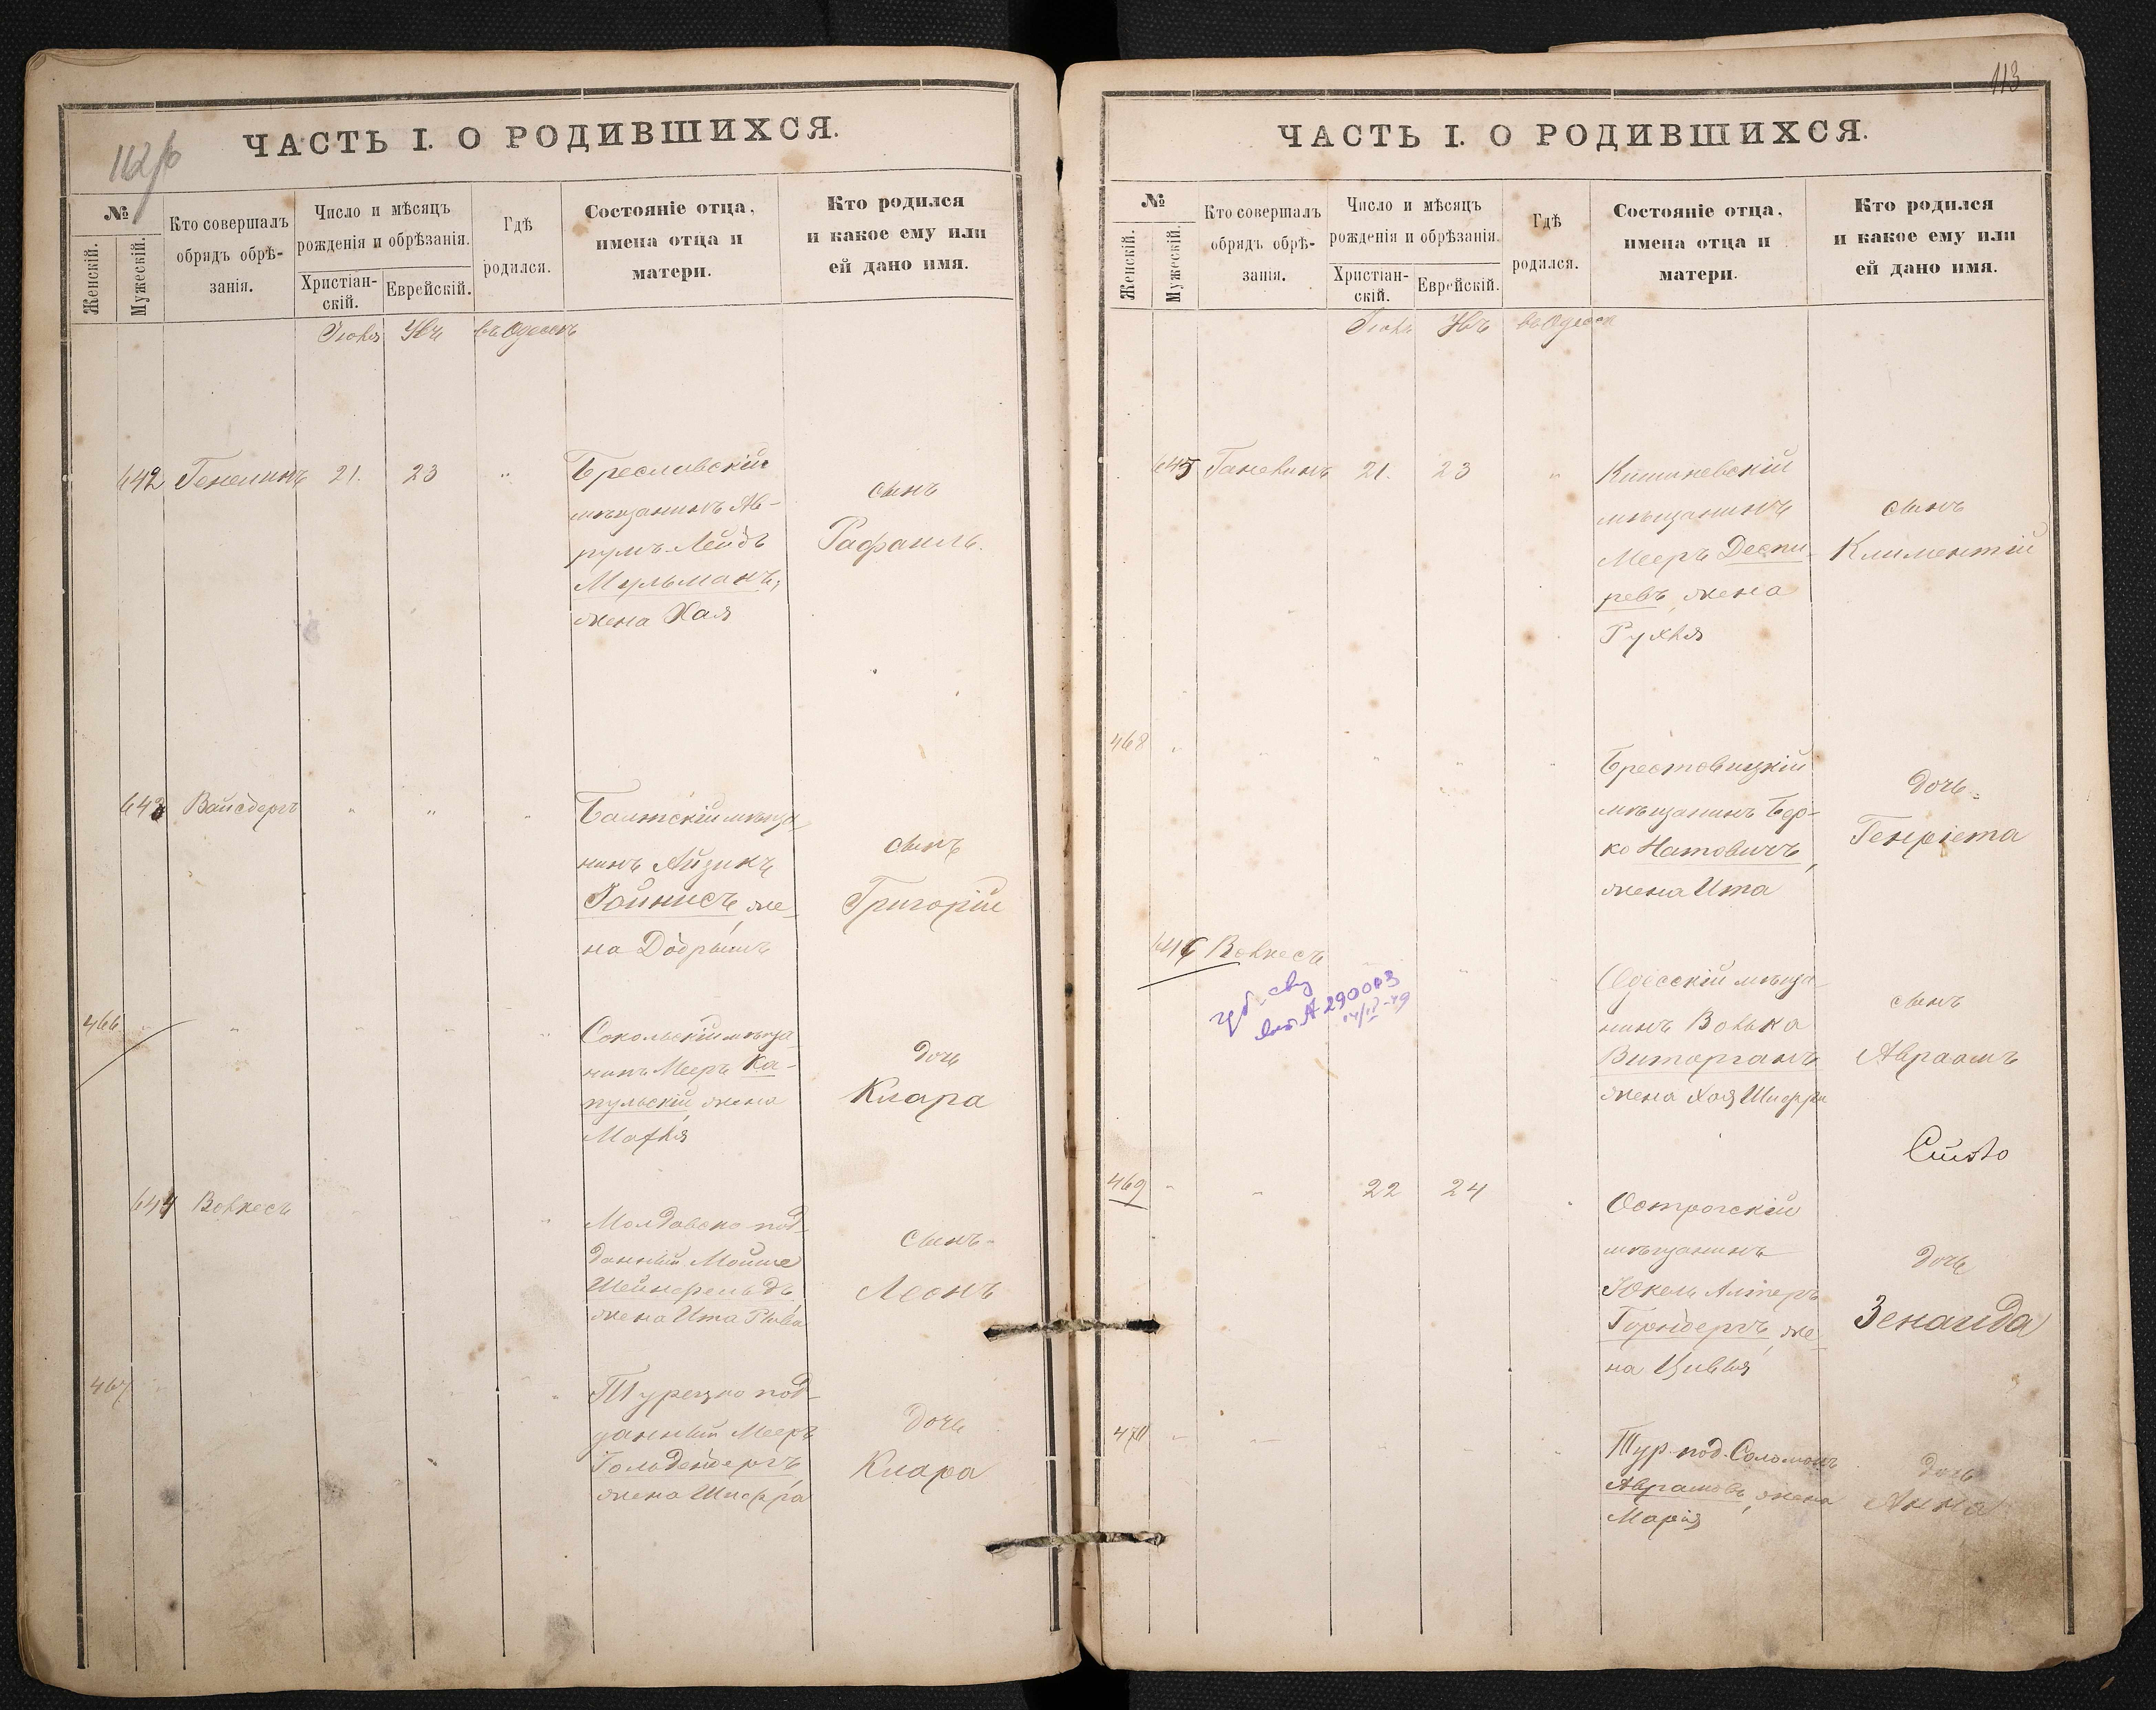 112об
ЧАСТЬ I. О РОДИВШИХСЯ.
№
Женскій.
Мужескій.
Кто совершалъ
обрядъ обрѣ-
занія.
Число и мѣсяцъ
рожденія и обрѣзанія.
Христіан-
скій.
Еврейскій.
Гдѣ
родился.
Состояніе отца,
имена отца и
матери.
Кто родился
и какое ему или
ей дано имя.
въ Одессѣ
642 21. 23 "
Бреславскій
мѣщанинъ Ав-
румъ-Лейбъ
Мульманъ,
жена Хая
сынъ
Рафаилъ.
643 Вайсбергъ " " "
Балтскій мѣща-
нинъ Айзикъ
Гойнисъ, же-
на Добрышъ
сынъ
Григорій
466
Сокольскій мѣща-
нинъ Мееръ Ка-
пульскій, жена
дочь
Клара
644 Вовкесъ
Молдавско под-
данный Мойше
Шейнфельдъ,
жена Ита Рива
сынъ
Леонъ
467
Турецко под-
данный Мееръ
Гольденбергъ,
жена Шифра
дочь
Клара
113
ЧАСТЬ I. О РОДИВШИХСЯ.
№
Женскій.
Мужескій.
Кто совершалъ
обрядъ обрѣ-
занія.
Число и мѣсяцъ
рожденія и обрѣзанія.
Христіан-
скій.
Еврейскій.
Гдѣ
родился.
Состояніе отца,
имена отца и
матери.
Кто родился
и какое ему или
ей дано имя.
въ Одессѣ
645 21. 23 "
Кишиневскій
мѣщанинъ
Мееръ Деспи-
ревъ, жена
Рухля
сынъ
Климентій
468 "
Брестовицкій
мѣщанинъ Бер-
ко Натовичъ,
жена Ита
дочь
Генріета
646 Вовкесъ
Одесскій мѣща-
нинъ Волько
Виторганъ
жена Хая Шифра
сынъ
Авраамъ
А 290003
469 " " 22 24 "
Острогскій
мѣщанинъ
Юкель Алтеръ
Горнбергъ, же-
на Цивья
дочь
Зенаида
470
Тур. под. Соломонъ
Аврамовъ, жена
Марія
дочь
Анна